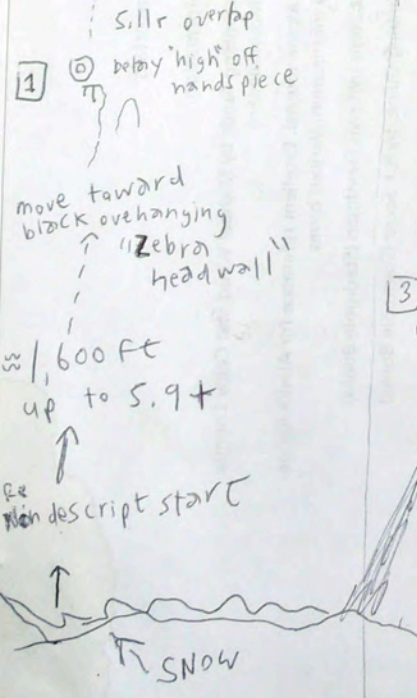 sills overlap
1
belay "high" off
hands piece
move toward
black ovehanging
"Zebra
headwall"
≈1,600 ft
up to 5.9+
Nondescript start
SNOW
3